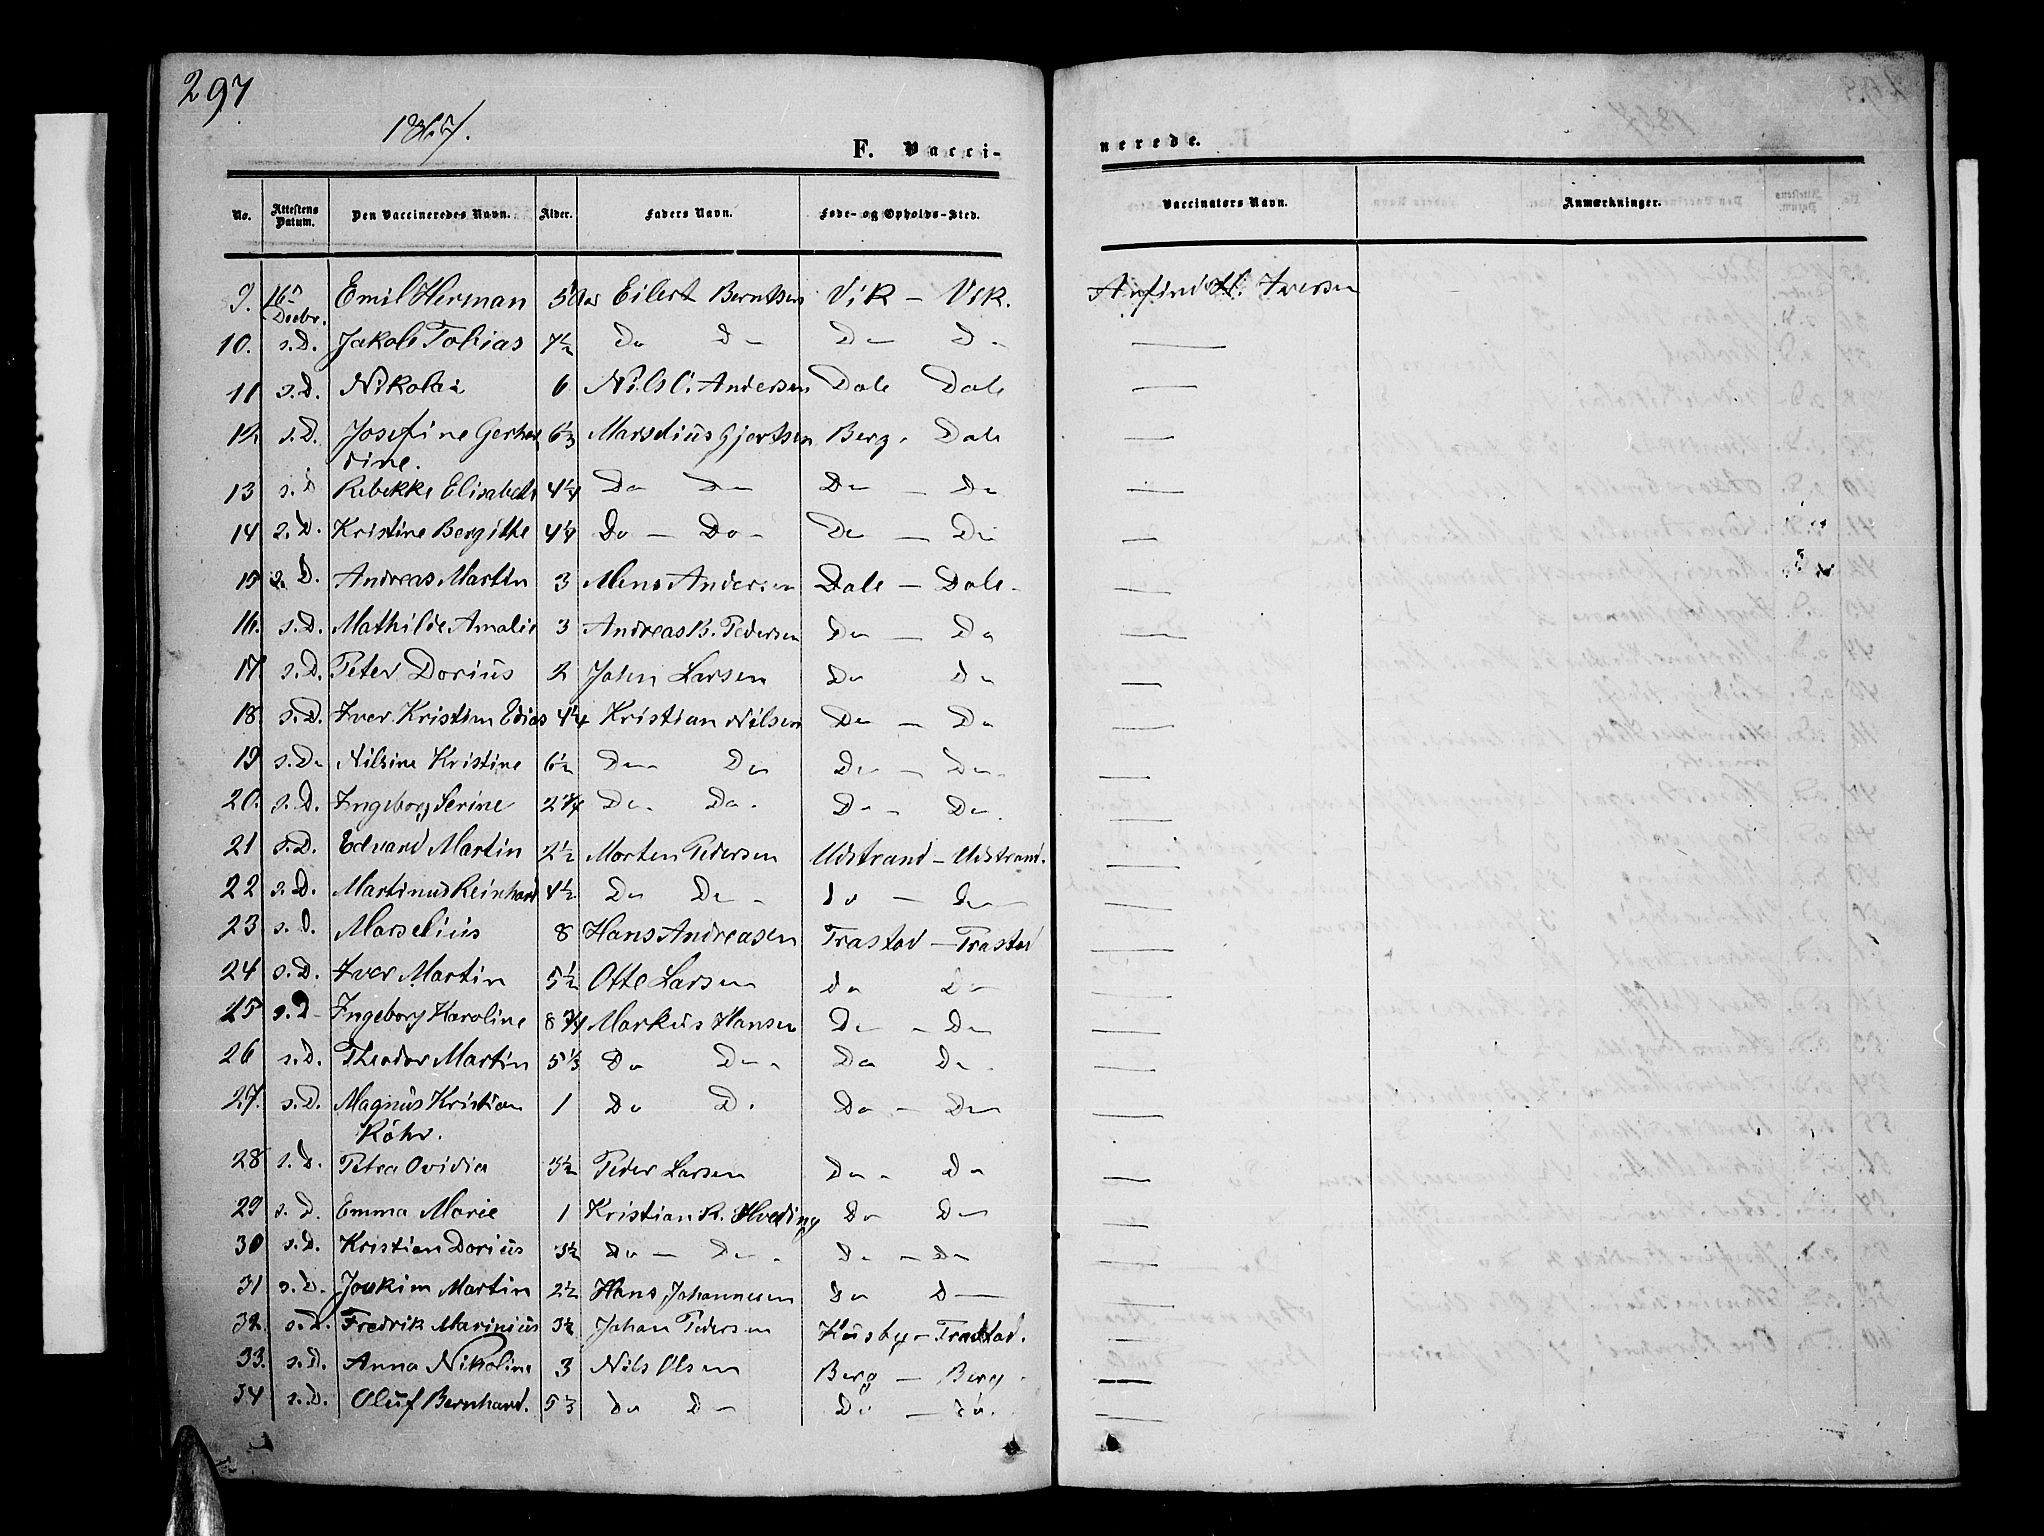 297
1867.
F. Vacci-
nerede.
No. Attestens Datum. Den Vaccineredes Navn. Alder. Faders Navn. Føde- og Opholds-Sted. Vaccinators Navn. Anmærkninger.
9. 16de Decbr. Emil Herman 5 Eilert Berntsen Vik – Vik. Iversen
10. s.D. Jakob Tobias 7½ Do Do Do Do —
11 s.D. Nikolai 6 Nils C. Andersen Dale Dale —
12. s.D. Josefine Gerhar 6⅓ Marselius Gjertsen Berg – Dale —
dine.
13 s.D Rebekke Elisabeth 4¼ Do Do Do – Do —
14 s.D. Kristine Bergitte 4¼ Do – Do – Do – Do —
15 s.D. Andreas Martin 3 Mens Andersen Dale – Dale – —
16. s.D. Mathilde Amalie 3 Andreas B. Pedersen Do – Do —
17 s.D. Peter Dorius 2 John Larsen Do Do —
18. s.D. Iver Kristian Edias 4¼ Kristian Nilsen Do – Do —
19 s.D. Nilsine Kristine 6½ Do Do Do – Do —
20. s.D. Ingeborg Serine 2¾ Do. Do. Do – Do. —
21 s.D. Edvard Martin 2½ Morten Pedersen Udstrand – Udstrand. —
22 s.D. Martinus Reinhard 4½ Do Do – do – Do —
23 s.D. Marselius 8 Hans Andreasen Trastad – Trastad —
24 s.D. Iver Martin 5½ Otte Larsen do Do —
25 s.D Ingeborg Karoline 8¾ Markus Hansen Do – Do —
26 s.D. Theodor Martin 5⅓ Do Do Do Do —
27. s.D. Magnus Kristian 1 Do Do Do – Do —
Röhr.
28 s.D. Petra Ovidia 3½ Peder Larsen Do – Do —
29 s.D. Emma Marie 1 Kristian R. Hveding Do Do —
30 s.D. Kristian Dorius 3½ Do – Do Do – Do —
31 s.D. Joakim Martin 2½ Hans Johannesen Do D— —
32. s.D. Fredrik Marinius 3½ Johan Pedersen Husby – Trastad. —
33. s.D. Anna Nikoline 3 Nils Olsen Berg – Berg —
34 s.D. Oluf Bernhard. 5⅓ do Do Do – do. —